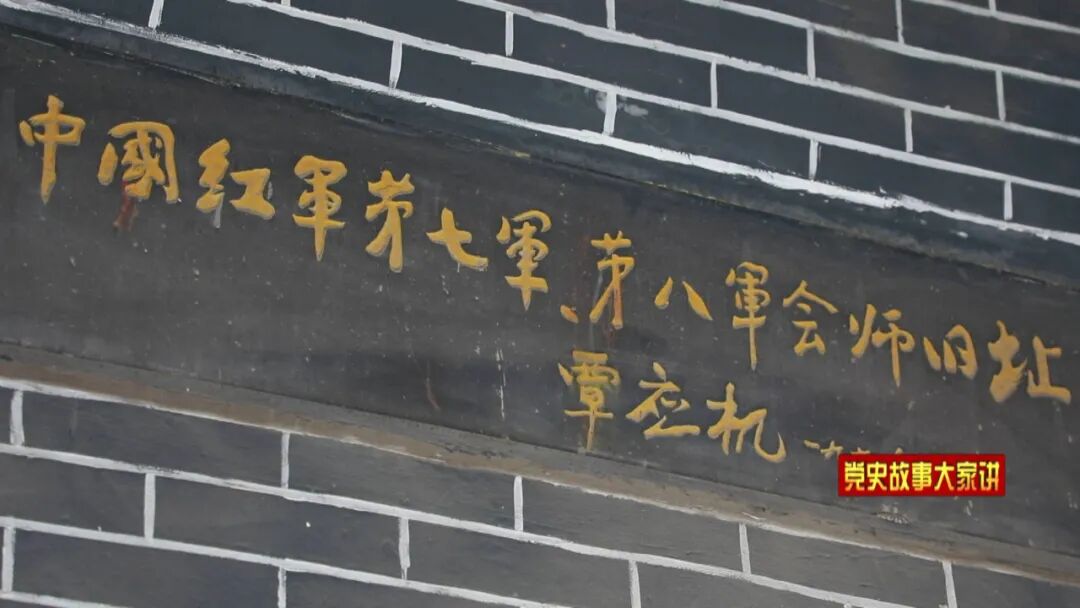 中國红軍第七軍、第八軍会师旧址
覃应机
党史故事大家讲